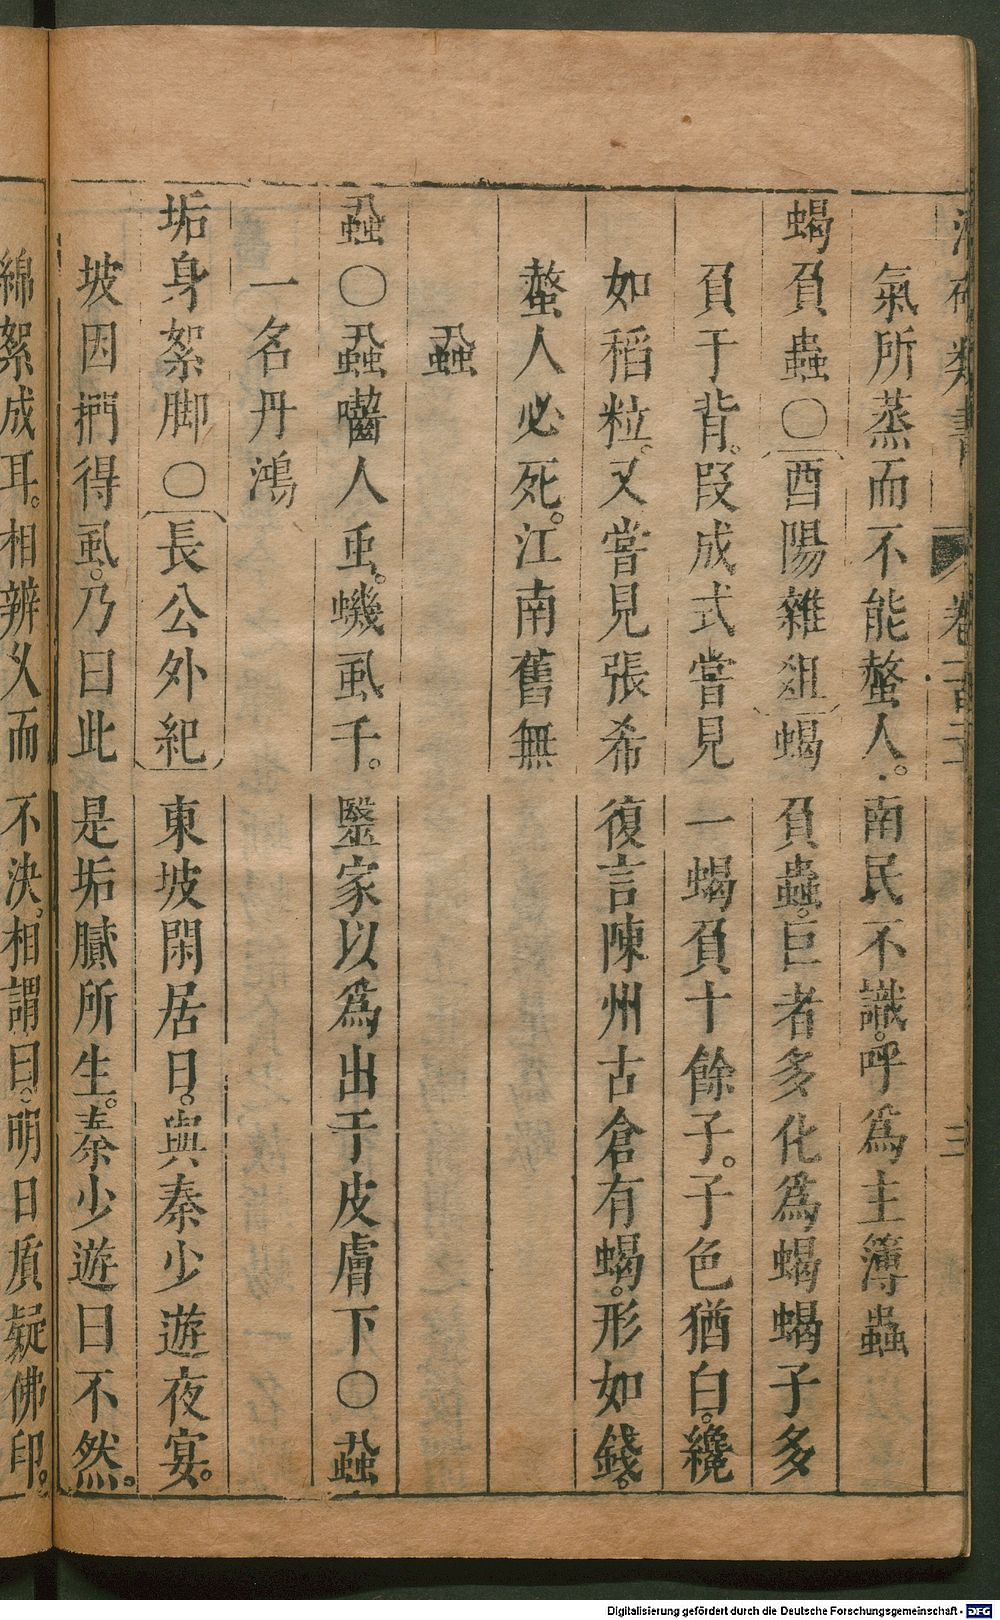 類書 卷一百二十 三
氣所蒸而不能螫人。南民不識。呼爲主簿蟲
蝎負蟲〇酉陽雜俎蝎負蟲。巨者多化爲蝎蝎子多
負于背。段成式嘗見一蝎負十餘子。子色猶白。纔
如稻粒。又嘗見張希復言陳州古倉有蝎。形如錢。
螫人必死。江南舊無
蝨
蝨〇蝨嚙人䖝。蟣虱千。毉家以爲出于皮膚下〇蝨
一名丹鴻
垢身絮脚〇長公外紀東坡閑居日。與秦少遊夜宴。
坡因捫得虱。乃曰此是垢膩所生。秦少遊曰不然。
綿絮成耳。相辨久而不決。相謂曰。明日質疑佛印。
Digitalisierung gefördert durch die Deutsche Forschungsgemeinschaft - DFG